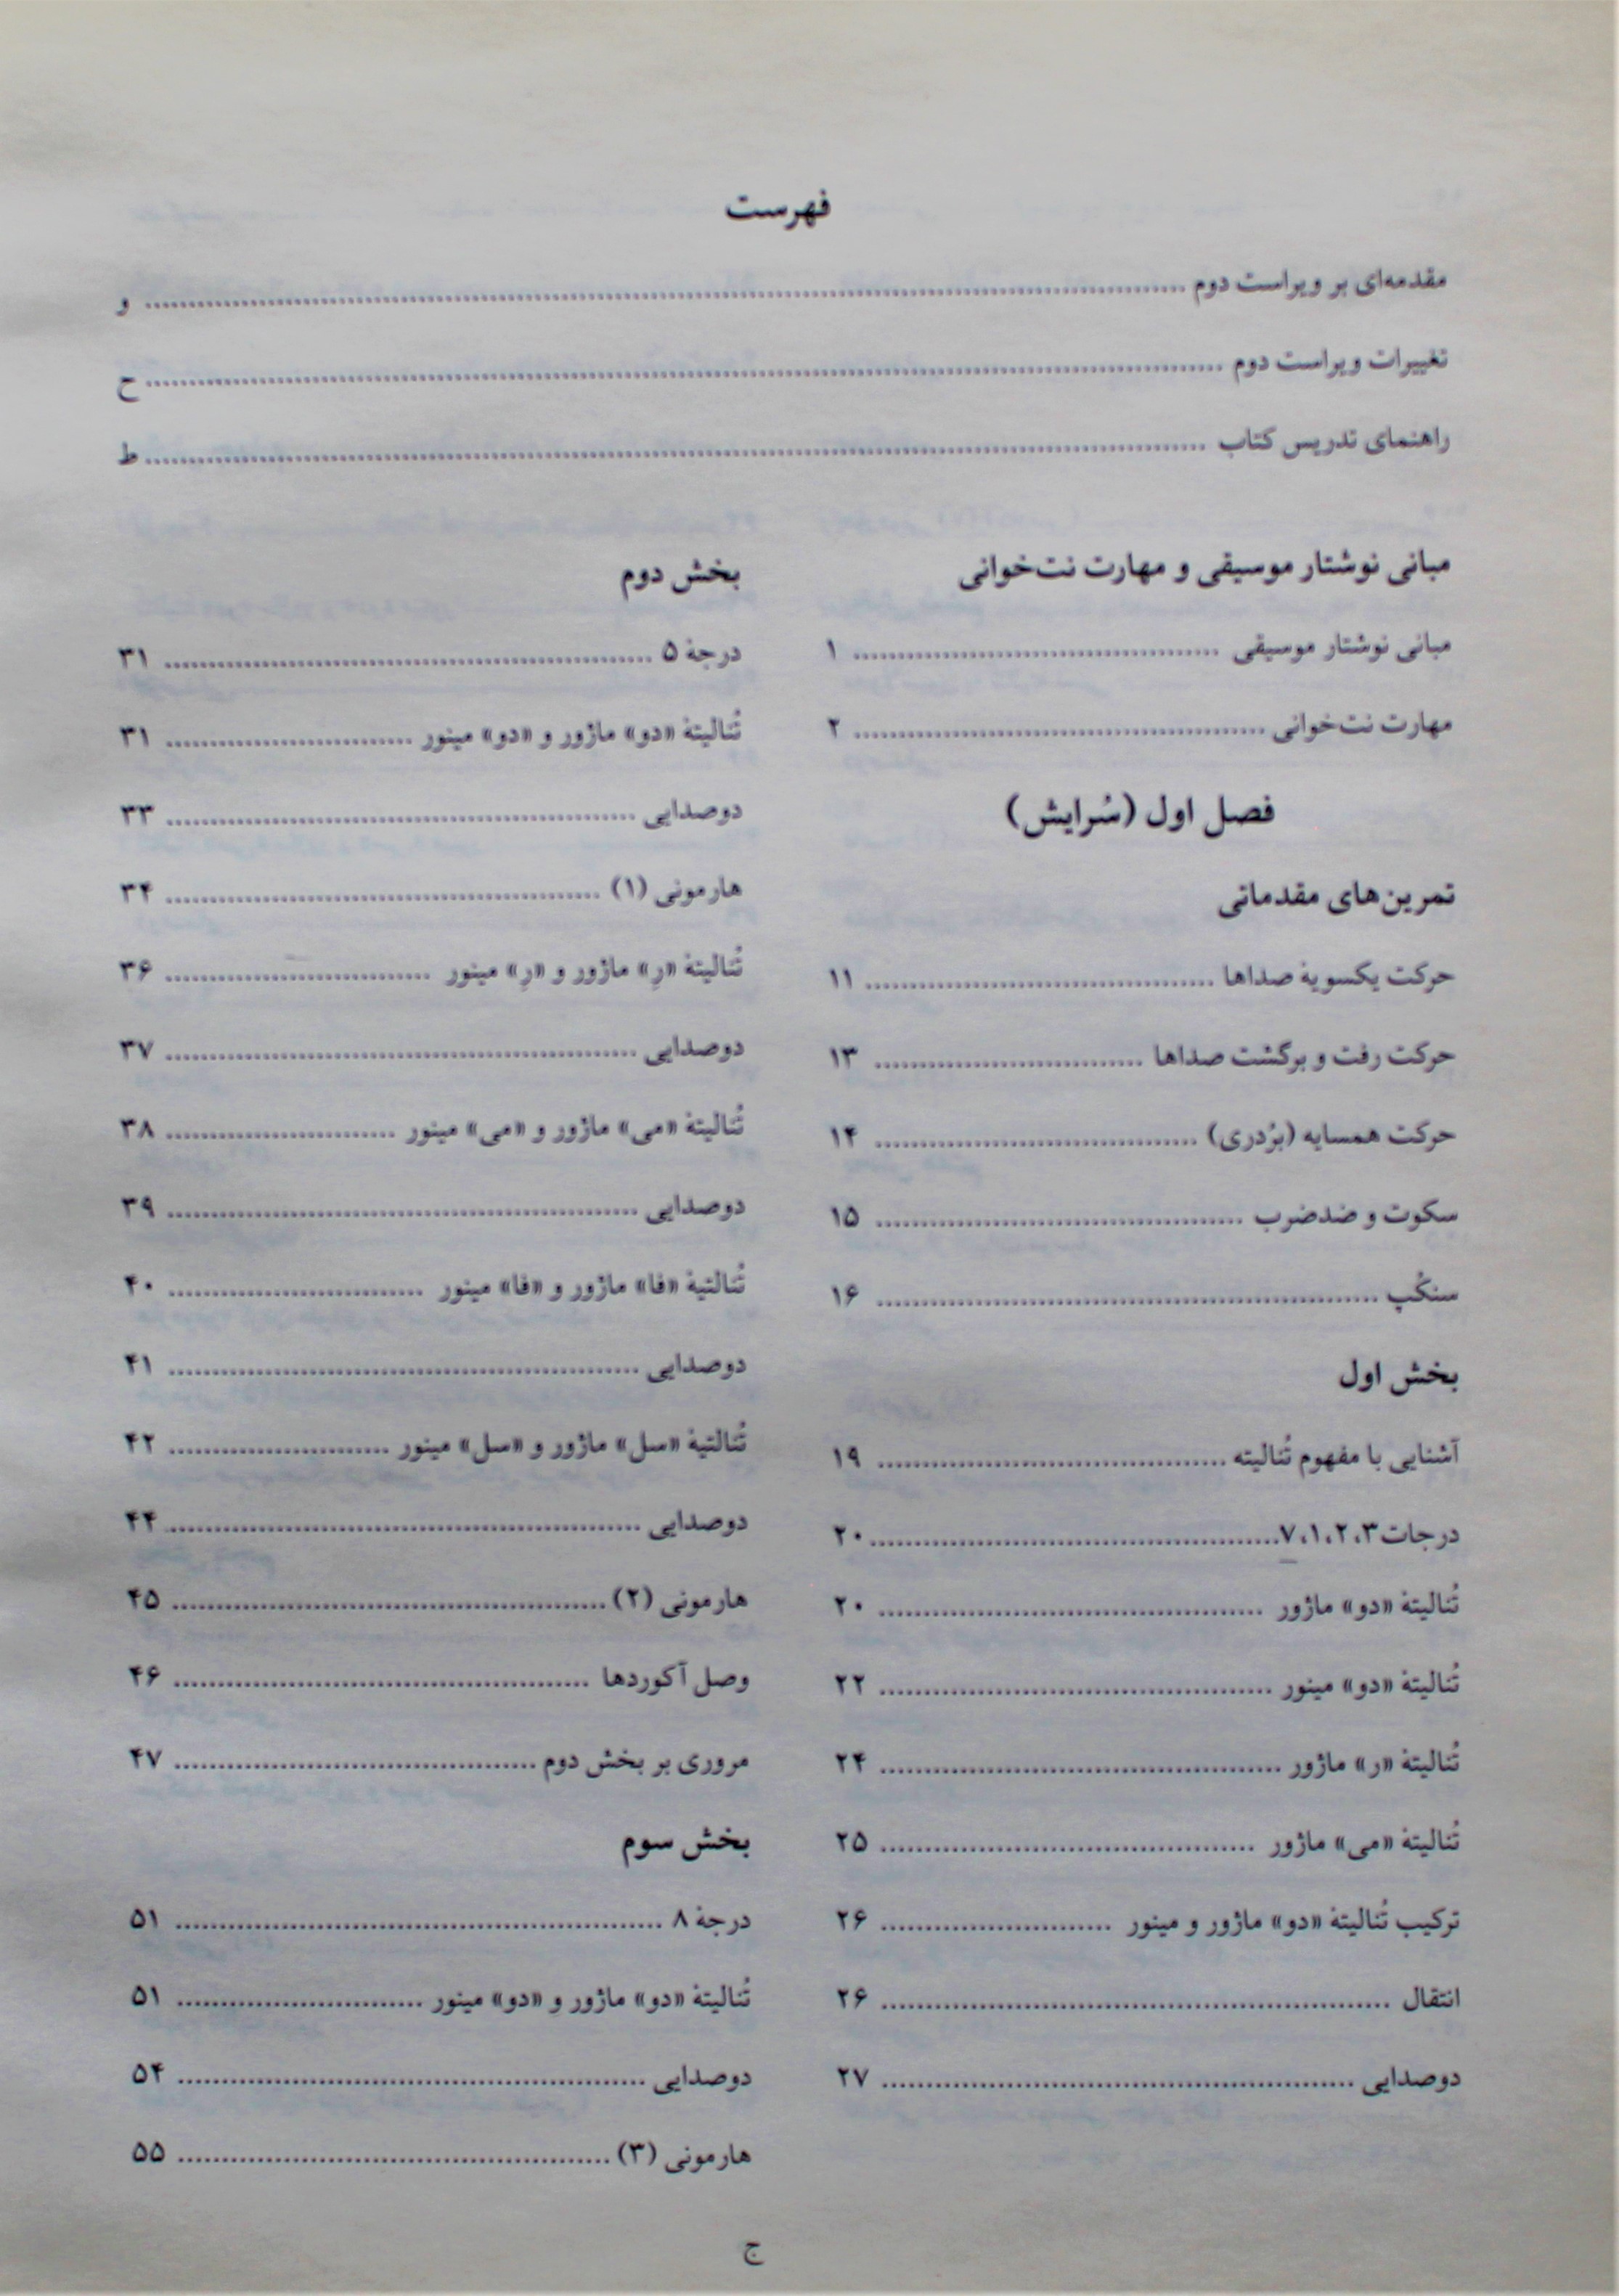 فهرست
مقدمه‌ای بر ویراست دوم ........ و
تغییرات ویراست دوم ........ ح
راهنمای تدریس کتاب ........ ط
مبانی نوشتار موسیقی و مهارت نت‌خوانی
مبانی نوشتار موسیقی ........ ۱
مهارت نت‌خوانی ........ ۲
فصل اول (سُرایش)
تمرین‌های مقدماتی
حرکت یکسویهٔ صداها ........ ۱۱
حرکت رفت و برگشت صداها ........ ۱۳
حرکت همسایه (برُدری) ........ ۱۴
سکوت و ضدضرب ........ ۱۵
سنکُپ ........ ۱۶
بخش اول
آشنایی با مفهوم تُنالیته ........ ۱۹
درجات ۳،۲،۱،۷ ........ ۲۰
تُنالیتهٔ «دو» ماژور ........ ۲۰
تُنالیتهٔ «دو» مینور ........ ۲۲
تُنالیتهٔ «ر» ماژور ........ ۲۴
تُنالیتهٔ «می» ماژور ........ ۲۵
ترکیب تُنالیتهٔ «دو» ماژور و مینور ........ ۲۶
انتقال ........ ۲۶
دوصدایی ........ ۲۷
بخش دوم
درجهٔ ۵ ........ ۳۱
تُنالیتهٔ «دو» ماژور و «دو» مینور ........ ۳۱
دوصدایی ........ ۳۳
هارمونی (۱) ........ ۳۴
تُنالیتهٔ «رِ» ماژور و «رِ» مینور ........ ۳۶
دوصدایی ........ ۳۷
تُنالیتهٔ «می» ماژور و «می» مینور ........ ۳۸
دوصدایی ........ ۳۹
تُنالتیهٔ «فا» ماژور و «فا» مینور ........ ۴۰
دوصدایی ........ ۴۱
تُنالتیهٔ «سل» ماژور و «سل» مینور ........ ۴۲
دوصدایی ........ ۴۴
هارمونی (۲) ........ ۴۵
وصل آکوردها ........ ۴۶
مروری بر بخش دوم ........ ۴۷
بخش سوم
درجهٔ ۸ ........ ۵۱
تُنالیتهٔ «دو» ماژور و «دو» مینور ........ ۵۱
دوصدایی ........ ۵۴
هارمونی (۳) ........ ۵۵
ج